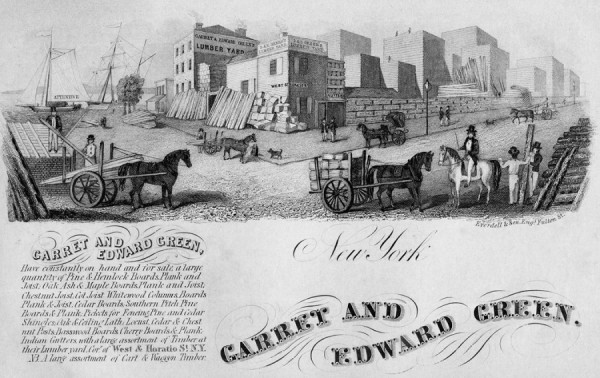 GARRET & EDWARD GREEN'S
LUMBER YARD
LUMBER YARD
WEST ST
Everdell & Son, Eng.s Fulton St.
GARRET AND
EDWARD GREEN,
Have constantly on hand and for sale, a large
quantity of Pine & Hemlock Boards, Plank and
Joist, Oak Ash & Maple Boards, Plank and Joist;
Chestnut Joist, Cot Joist Whitewood Columns, Boards
Plank & Joist, Cedar Boards, Southern Pitch Pine
Boards & Plank, Pickets for Fencing, Pine and Cedar
Shingles, Oak & Ceiling Lath, Locust, Cedar & Chest
nut Posts, Basswood Boards, Cherry Boards & Plank,
Indian Gutters, with a large assortment of Timber at
their lumber yard, Cor. of West & Horatio Sts. N.Y.
N.B. A large assortment of Cart & Waggon Timber
New York
GARRET AND
EDWARD GREEN.